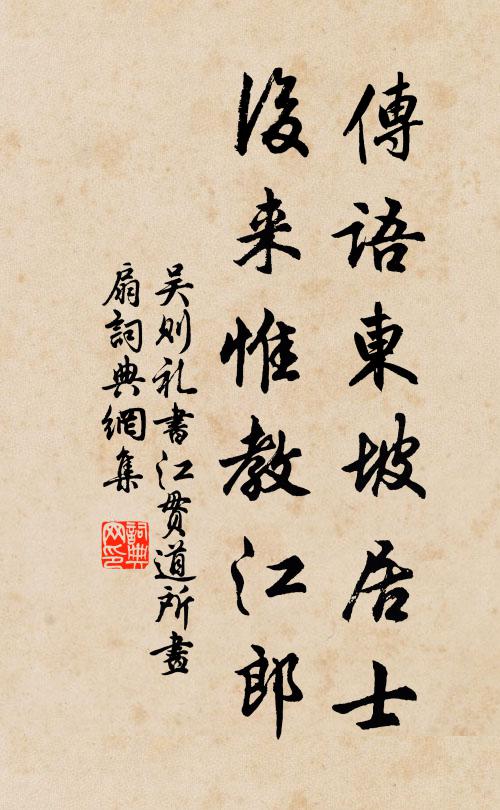 傳語東坡居士
後来惟教江郎
吴则礼書江贯道所畫
扇詞典網集
詞典網印